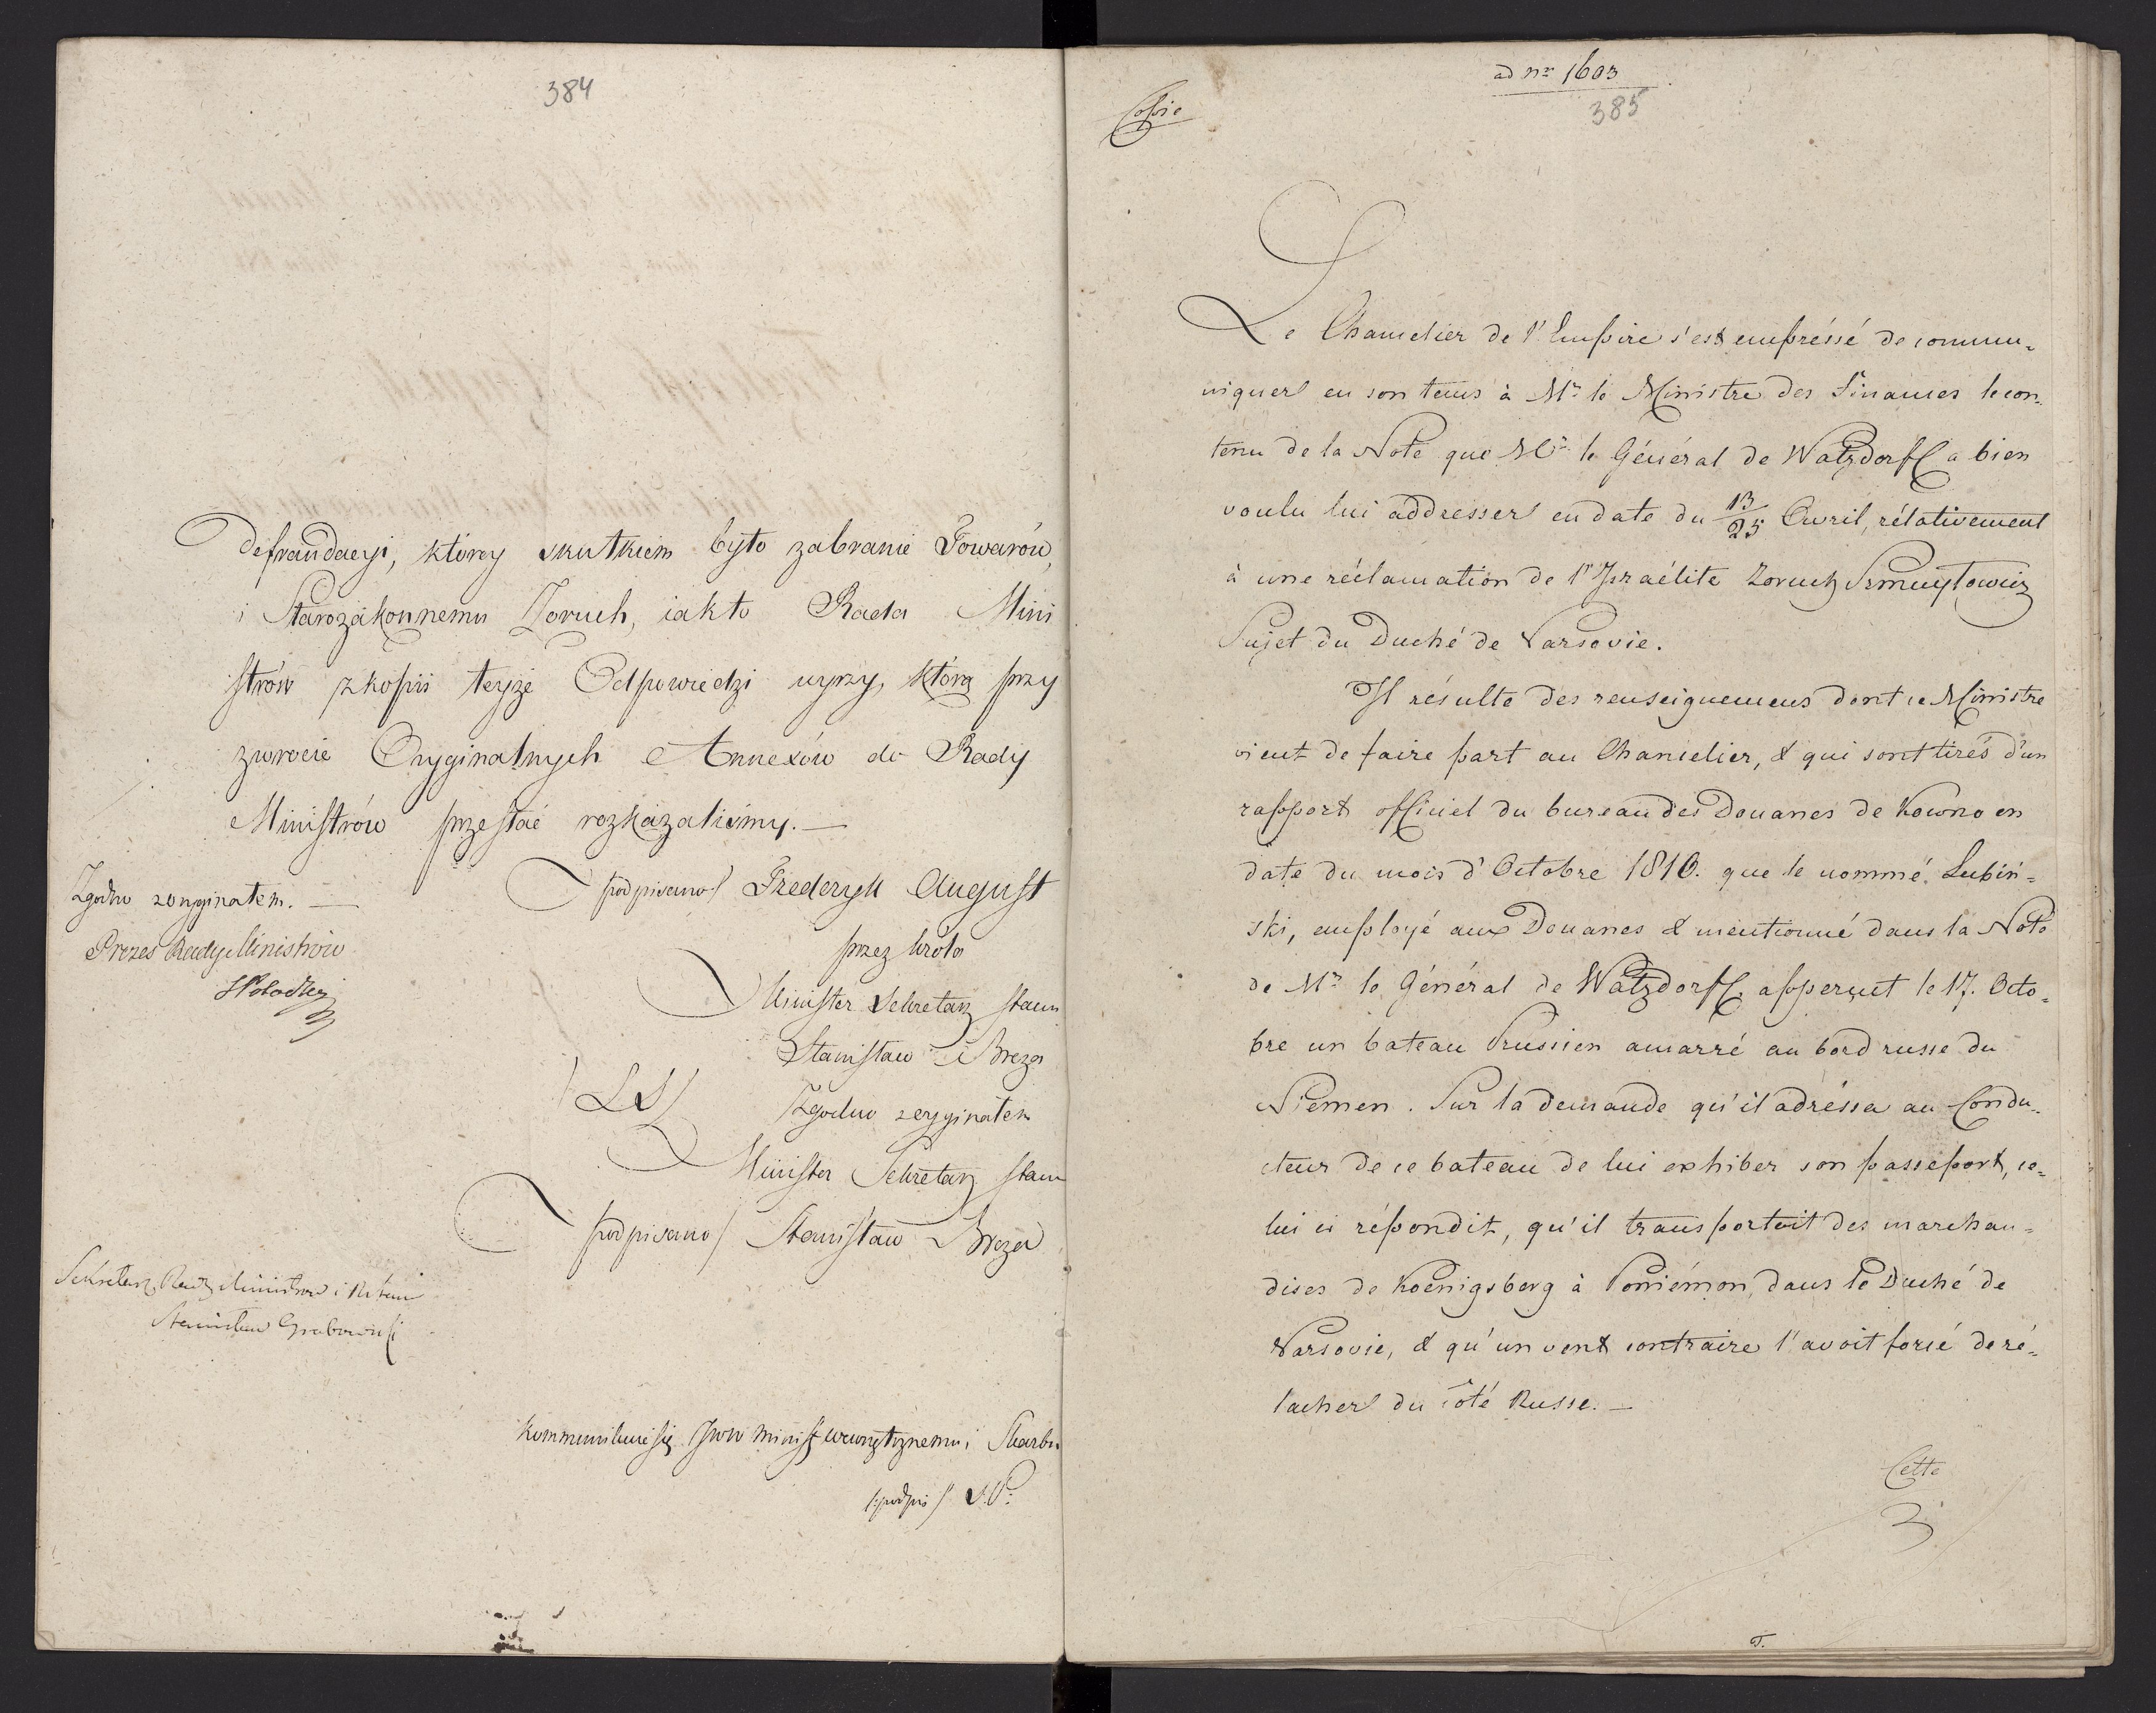 384
Defraudacyi, którey skutkiem było zabranie Towarów,
i Starozakonnemu Zoruch, iak to Rada Mini
strów z kopii teyże Odpowiedzi uyrzy, którą przy
zwrocie Oryginalnych Annexów do Rady
Ministrów przesłać rozkazaliśmy. —
podpisano/ Frederyk August
Zgodno z oryginałem. —
Prezes Rady Ministrów
przez Króla
Minister Sekretarz Stanu
Stanisław Breza
/LS/
Zgodno z oryginałem
Minister Sekretarz Stanu
podpisano/ Stanisław Breza
Sekretarz Rady Ministrów i R. Stanu
Stanisław Grabowski
Kommunikuie się JWW Minist. wewnętrznemu i Skarbu
/:podpis:/ S.P:
ad nr 1603
385
Copie
Le Chancelier de l'Empire s'est empréssé de commu-
niquer en son tems à Mr le Ministre des Finances le con-
tenu de la Note que Mr le Général de Watzdorff a bien
voulu lui addresser en date du 13/25 Avril, rélativement
à une réclamation de l'Israélite Zoruch Szmuyłowicz
Sujet du Duché de Varsovie.
Il résulte des renseignemens dont ce Ministre
vient de faire part au Chancelier, & qui sont tirés d'un
rapport officiel du bureau des Douanes de Kowno en
date du mois d'Octobre 1810. que le nommé Lubin-
ski, employé aux Douanes & mentionné dans la Note
de Mr le Général de Watzdorff, apperçut le 17. Octo-
bre un bateau Prussien amarré au bord russe du
Niemen. Sur la demande qu'il adréssa au Condu-
cteur de ce bateau de lui exhiber son passeport, ce-
lui ci répondit, qu'il transportoit des marchan-
dises de Koenigsberg à Poniémon, dans le Duché de
Varsovie, & qu'un vent contraire l'avoit forcé de ré-
lacher du côté Russe. —
Cette
T.